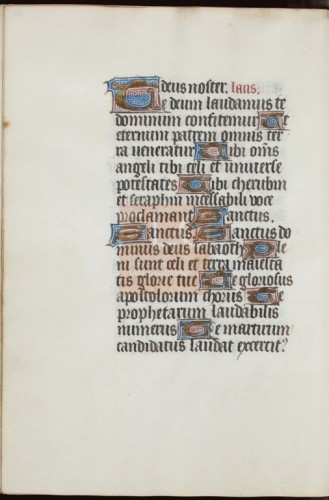 deus noster. laus.
Te deum laudamus te
dominum confitemur Te
eternum patrem omnis ter
ra veneratur Tibi om̄s
angeli tibi celi et universe
potestates Tibi cherubin
et seraphin incessabili voce
proclamant Sanctus.
Sanctus. Sanctus do
minus deus sabaoth Ple
ni sunt celi et terra maiesta
tis glorie tue Te gloriosus
apostolorum chorus Te
prophetarum laudabilis
numerus Te martirum
candidatus laudat exercit⁹